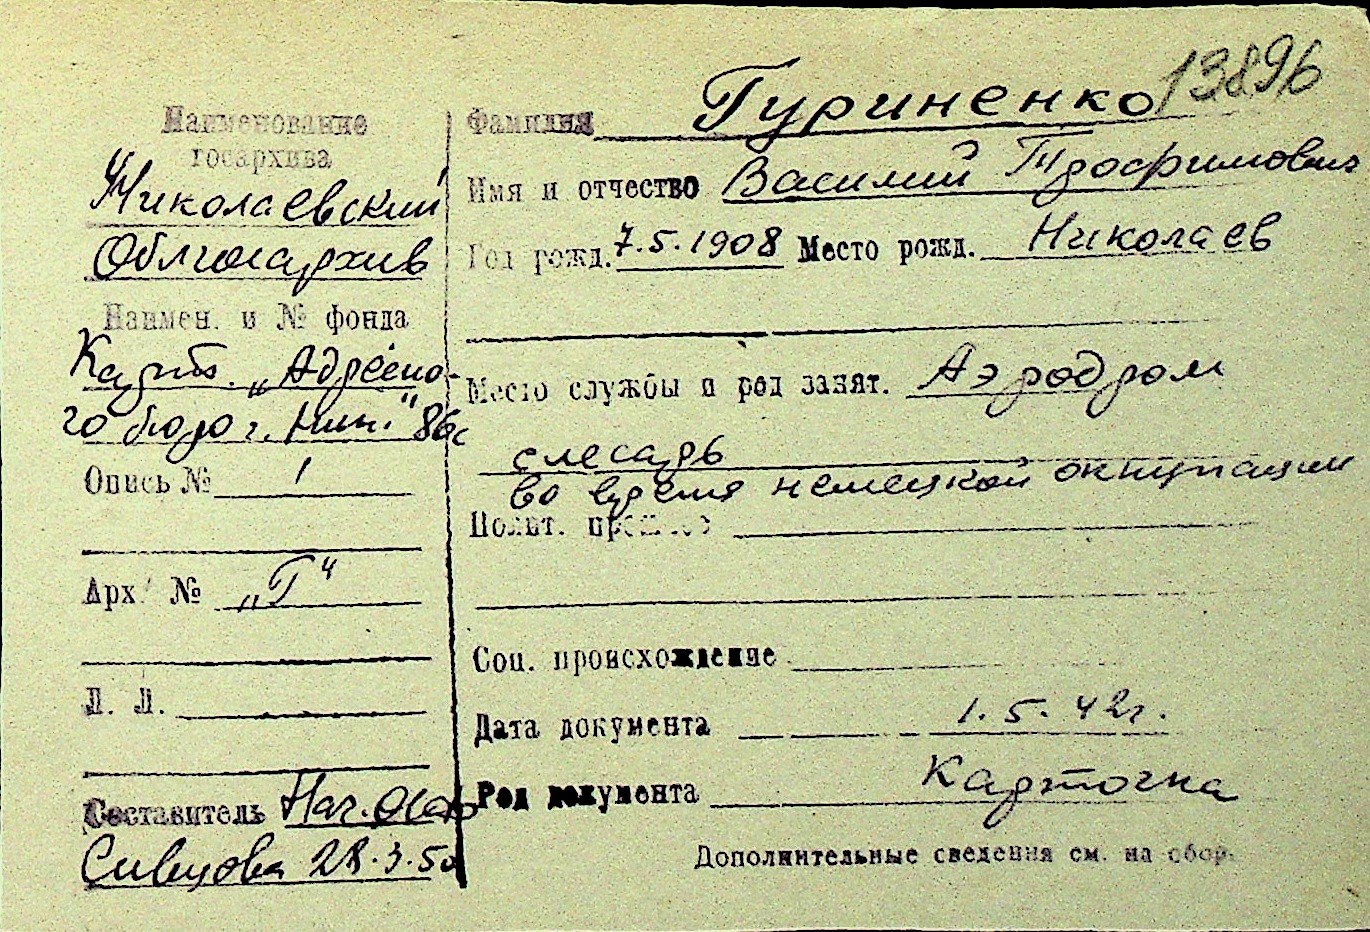 13896
Наименование
госархива
Николаевский
Облгосархив
Наимен. и № фонда
Карт. „Адресно-
го бюро г. Ник." 86с
Опись № 1
Арх. № „Г"
Л. Л.
Составитель Нач.
Сивцова 28.3.50
Фамилия Гуриненко
Имя и отчество Василий Трофимович
Год рожд. 7.5.1908 Место рожд. Николаев
Место службы и род занят. Аэродром
слесарь
во время немецкой оккупации
Полит. прошлое
Соц. происхождение
Дата документа 1.5.42г.
Род документа Карточка
Дополнительные сведения см. на обор.